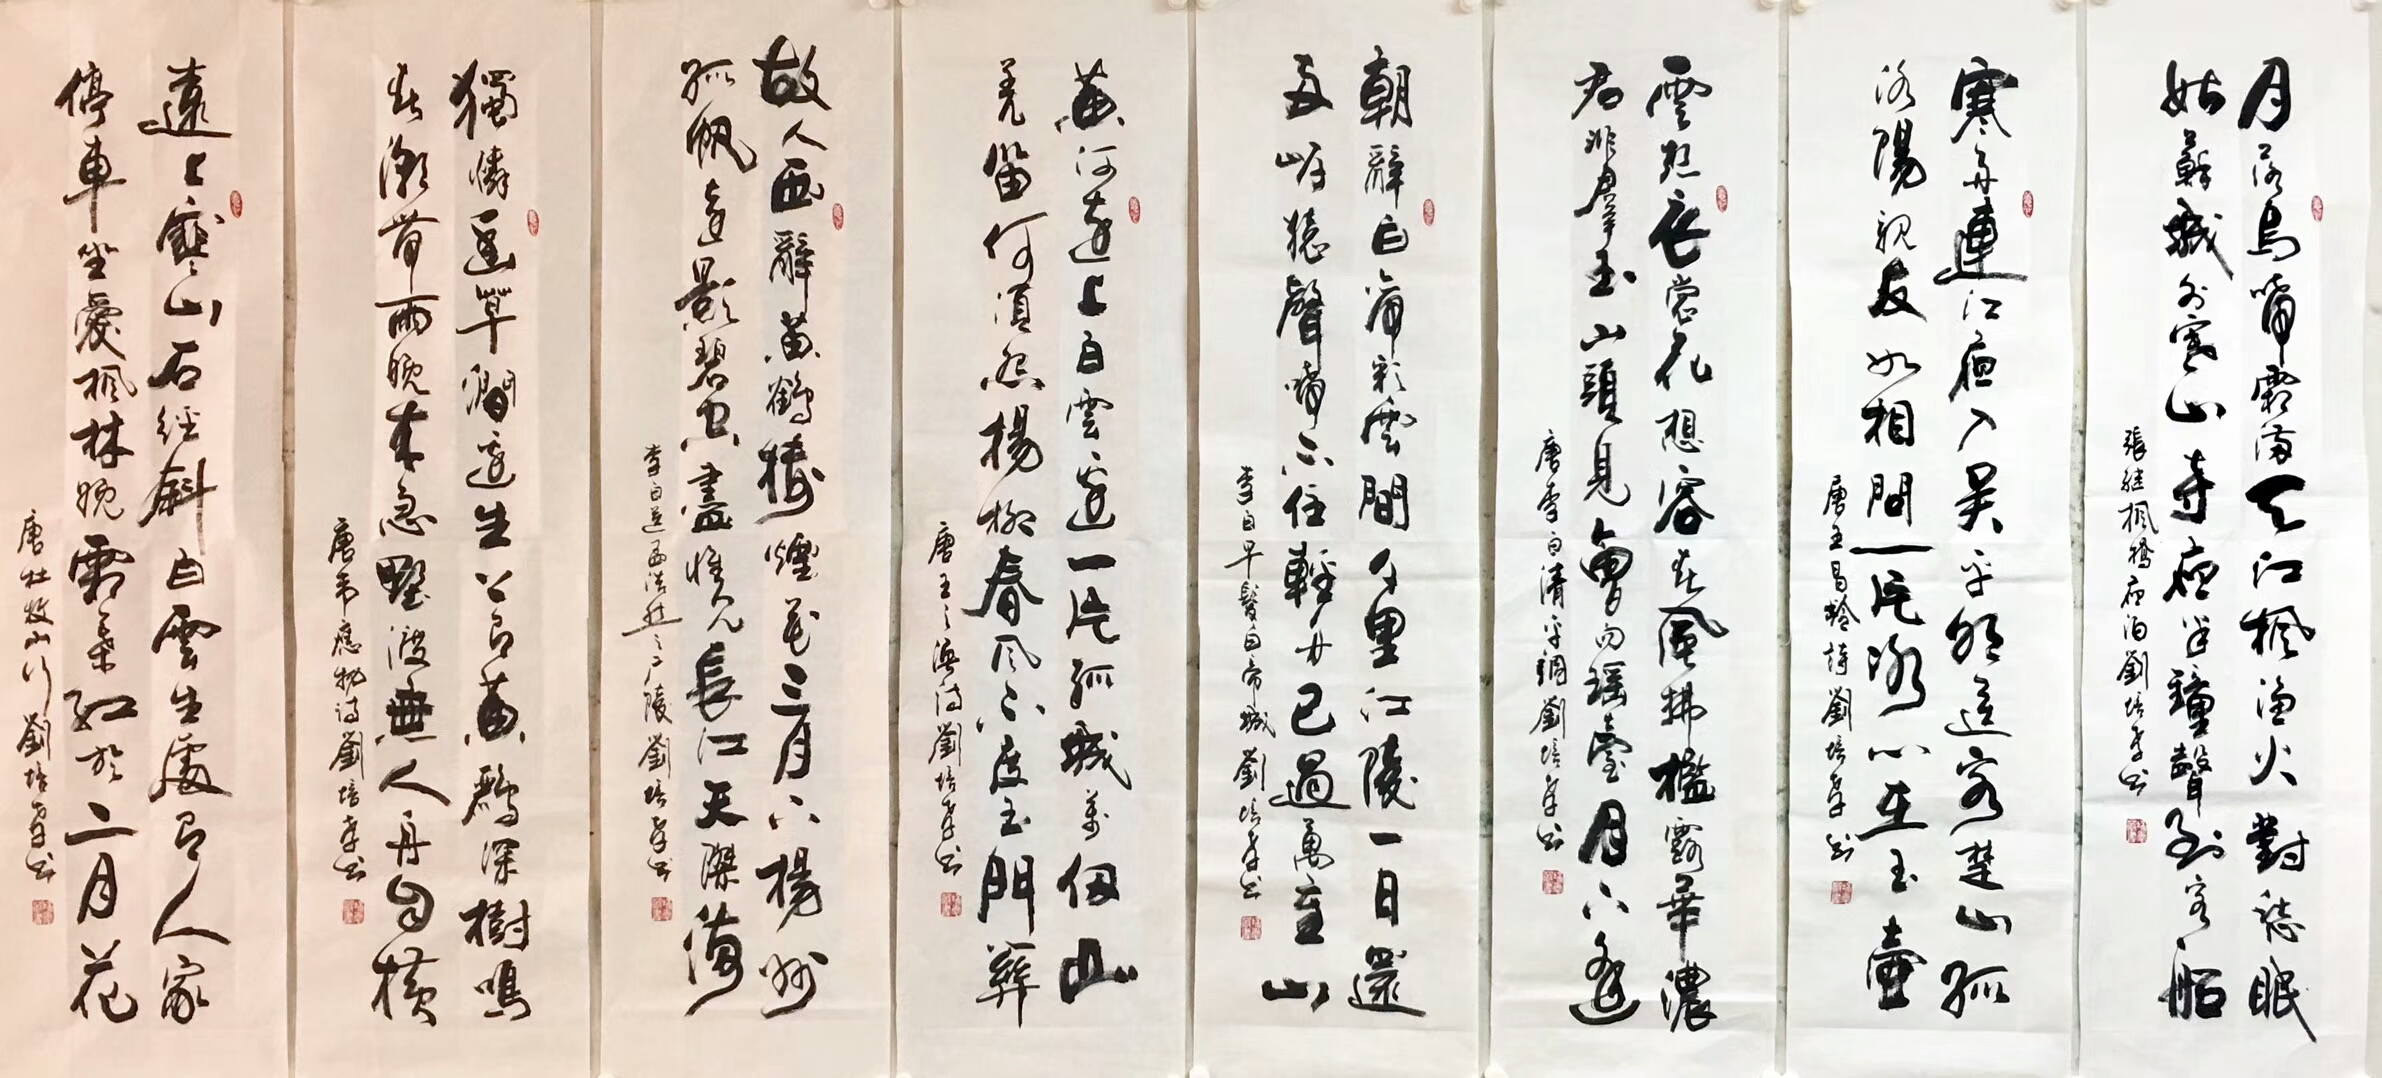 月落烏啼霜滿天江楓漁火對愁眠
姑蘇城外寒山寺夜半鐘聲到客船
張继楓橋夜泊劉培孝书
寒舟連江夜入吴平明送客楚山孤
洛陽親友如相問一片冰心在玉壺
唐王昌龄詩劉培孝书
雲想衣裳花想容春風拂檻露華濃
若非羣玉山頭見會向瑶臺月下逢
唐李白清平調劉培孝书
朝辭白帝彩雲間千里江陵一日還
两岸猿聲啼不住輕舟已過萬重山
李白早發白帝城劉培孝书
黄河遠上白雲邊一片孤城萬仞山
羌笛何須怨楊柳春风不度玉門關
唐王之涣诗劉培孝书
故人西辭黄鶴樓煙花三月下揚州
孤帆遠影碧空盡惟见長江天際流
李白送孟浩然之广陵劉培孝书
獨憐幽草澗邊生上有黄鸝深樹鳴
春潮帶雨晚來急野渡無人舟自横
唐韦應物诗劉培孝书
遠上寒山石徑斜白雲生處有人家
停車坐愛楓林晚霜葉红於二月花
唐杜牧山行劉培孝书